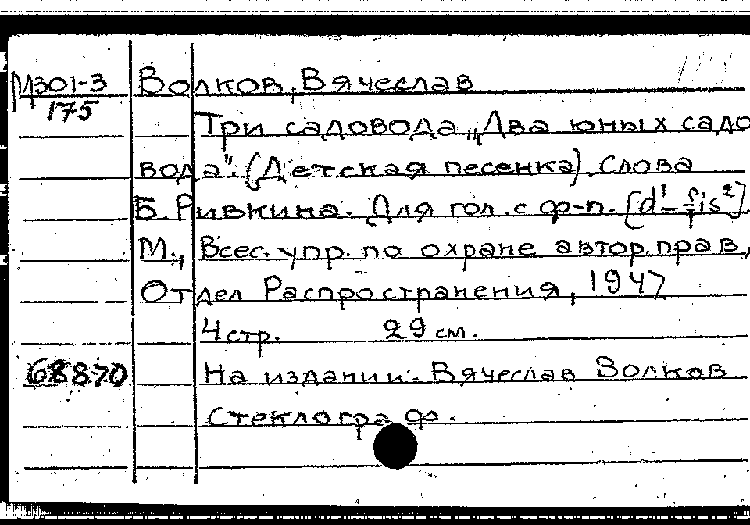 М301-3 Волков, Вячеслав
175
Три садовода „Два юных садо
вода". (Детская песенка). Слова
Б. Ривкина. Для гол. с ф-п. [d¹-fis²].
М., Всес. упр. по охране автор. прав,
Отдел Распространения, 1947
4 стр. 29 см.
68870 На издании: Вячеслав Волков
Стеклограф.